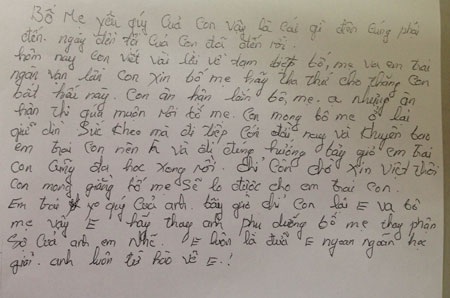 Bố Mẹ yêu quý Của Con vậy là Cái gì đến Cũng phải
đến. ngày đời tồi Của Con đã đến rồi.
hôm nay con viết vài lời về tạm biệt bố, mẹ và em trai
ngàn vạn lần con xin bố mẹ hãy tha thứ cho thằng Con
bất hiếu này. Con ân hận lắm bố, mẹ. ạ nhưng ân
hận thì quá muộn rồi bố mẹ. Con mong bố mẹ ở lại
giữ dìn Sức khỏe mà đi tiếp Con đời này và khuyên bảo
em trai con nên và đi đúng hướng bây giờ em trai
con cũng đại học xong rồi. chỉ Còn chờ xin việc thôi
con mong giằng bố mẹ Sẽ lo được cho em trai Con.
Em trai yê quý Của anh. bây giờ chỉ Còn lại E và bố
mẹ vậy E hãy thay anh phụ dưỡng bố mẹ thay phận
Của anh em Nhé. E luôn là đứa E ngoan ngoãn học
giỏi. anh luôn tự hào về E.!